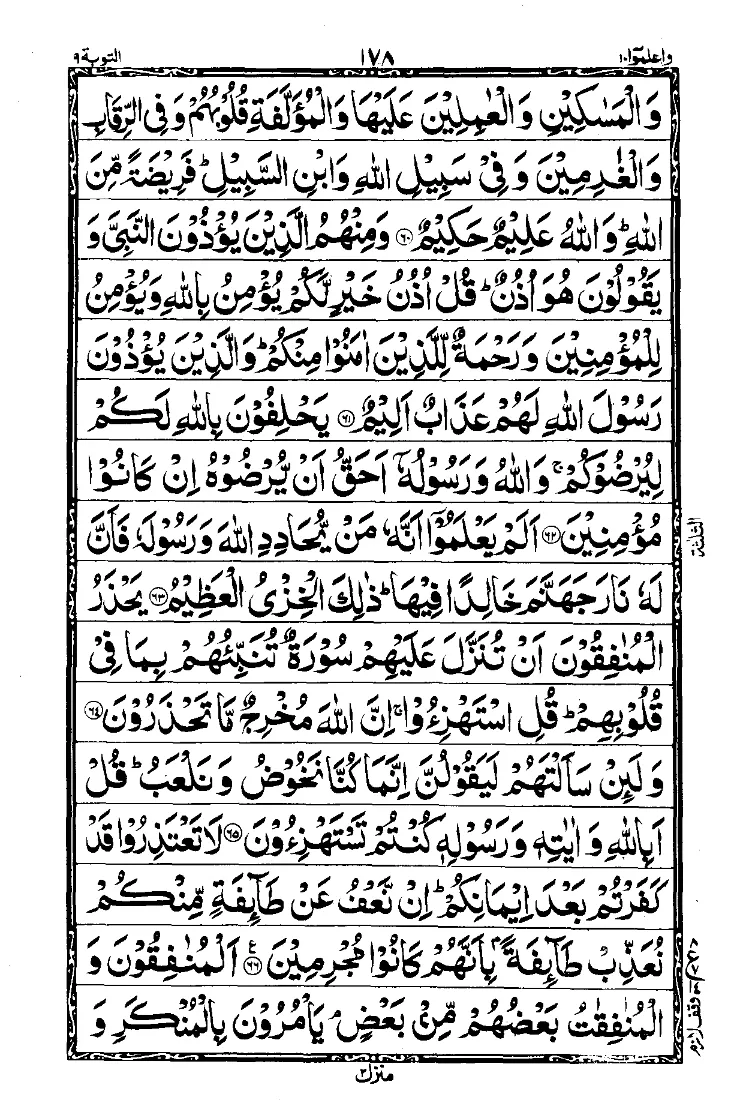 واعلموا۱۰ ۱۷۸ التوبة۹
وَالْمَسٰكِيْنِ وَالْعٰمِلِيْنَ عَلَيْهَا وَالْمُؤَلَّفَةِ قُلُوْبُهُمْ وَفِى الرِّقَابِ
وَالْغٰرِمِيْنَ وَفِىْ سَبِيْلِ اللهِ وَابْنِ السَّبِيْلِ ؕ فَرِيْضَةً مِّنَ
اللهِ ؕ وَاللهُ عَلِيْمٌ حَكِيْمٌ ﴿۶۰﴾ وَمِنْهُمُ الَّذِيْنَ يُؤْذُوْنَ النَّبِىَّ وَ
يَقُوْلُوْنَ هُوَ اُذُنٌ ؕ قُلْ اُذُنُ خَيْرٍ لَّكُمْ يُؤْمِنُ بِاللهِ وَيُؤْمِنُ
لِلْمُؤْمِنِيْنَ وَرَحْمَةٌ لِّلَّذِيْنَ اٰمَنُوْا مِنْكُمْ ؕ وَالَّذِيْنَ يُؤْذُوْنَ
رَسُوْلَ اللهِ لَهُمْ عَذَابٌ اَلِيْمٌ ﴿۶۱﴾ يَحْلِفُوْنَ بِاللهِ لَكُمْ
لِيُرْضُوْكُمْ ۚ وَاللهُ وَرَسُوْلُهٗۤ اَحَقُّ اَنْ يُّرْضُوْهُ اِنْ كَانُوْا
مُؤْمِنِيْنَ ﴿۶۲﴾ اَلَمْ يَعْلَمُوْۤا اَنَّهٗ مَنْ يُّحَادِدِ اللهَ وَرَسُوْلَهٗ فَاَنَّ
لَهٗ نَارَ جَهَنَّمَ خَالِدًا فِيْهَا ؕ ذٰلِكَ الْخِزْىُ الْعَظِيْمُ ﴿۶۳﴾ يَحْذَرُ
الْمُنٰفِقُوْنَ اَنْ تُنَزَّلَ عَلَيْهِمْ سُوْرَةٌ تُنَبِّئُهُمْ بِمَا فِىْ
قُلُوْبِهِمْ ؕ قُلِ اسْتَهْزِءُوْا ۚ اِنَّ اللهَ مُخْرِجٌ مَّا تَحْذَرُوْنَ ﴿۶۴﴾
وَلَئِنْ سَاَلْتَهُمْ لَيَقُوْلُنَّ اِنَّمَا كُنَّا نَخُوْضُ وَنَلْعَبُ ؕ قُلْ
اَبِاللهِ وَاٰيٰتِهٖ وَرَسُوْلِهٖ كُنْتُمْ تَسْتَهْزِءُوْنَ ﴿۶۵﴾ لَا تَعْتَذِرُوْا قَدْ
كَفَرْتُمْ بَعْدَ اِيْمَانِكُمْ ؕ اِنْ نَّعْفُ عَنْ طَآئِفَةٍ مِّنْكُمْ
نُعَذِّبْ طَآئِفَةًۢ بِاَنَّهُمْ كَانُوْا مُجْرِمِيْنَ ﴿۶۶﴾ ع اَلْمُنٰفِقُوْنَ وَ
الْمُنٰفِقٰتُ بَعْضُهُمْ مِّنْۢ بَعْضٍ ۘ يَاْمُرُوْنَ بِالْمُنْكَرِ وَ
الثلثة
وقف لازم
منزل ۲